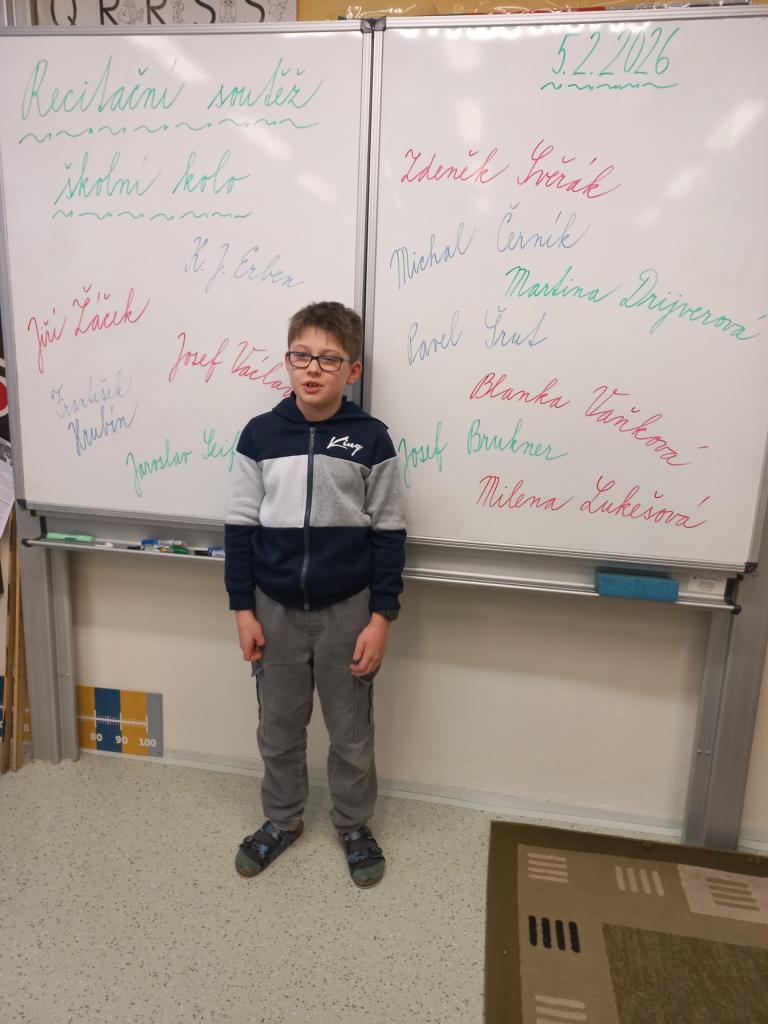 Q R R S S
Recitační soutěž
školní kolo
K. J. Erben
Jiří Žáček
Josef Václav
František
Hrubín
Jaroslav Seif
5.2.2026
Zdeněk Svěrák
Michal Černík
Martina Drijverová
Pavel Šrut
Blanka Vaňková
Josef Brukner
Milena Lukešová
King
80 90 100